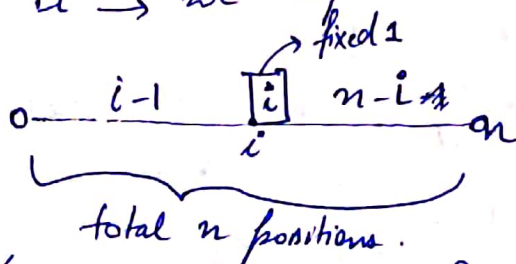 fixed 1
0 i-1 i n-i n
i
total n positions.